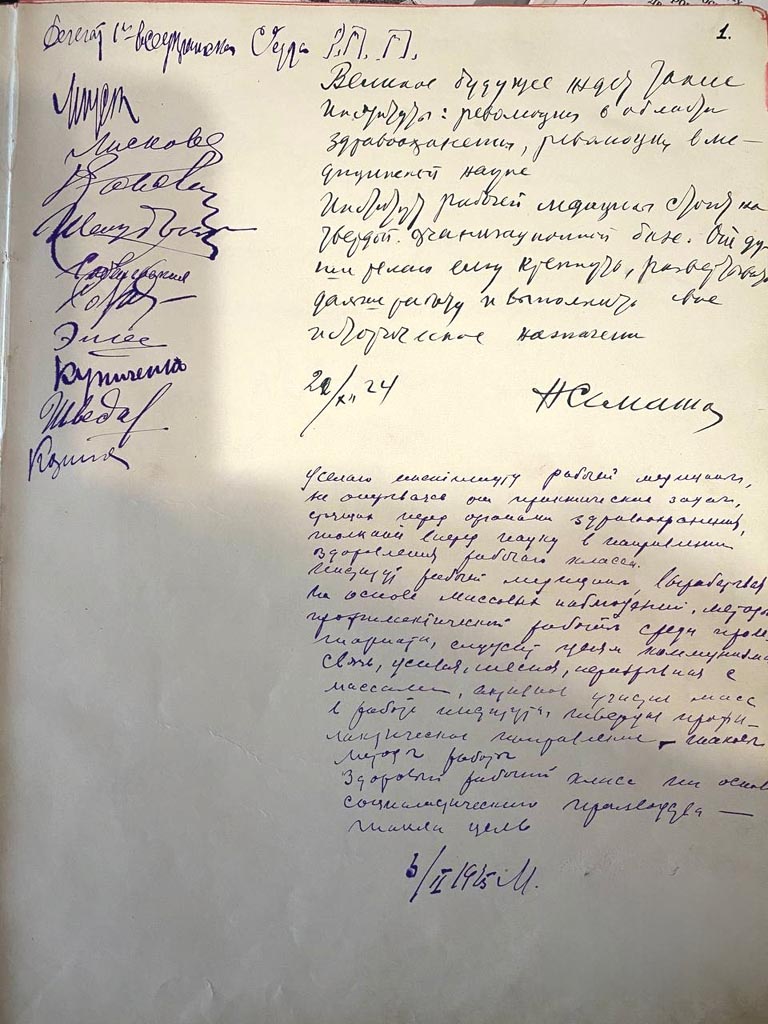 1.
Делегат 1го всеукраинского С'езда Р.П.П.
Лискова
Эпсе
Куниченко
Шведов
Великое будущее ждет такие
Институты: революция в области
здравоохранения, революция в ме–
дицинской науке
Институт рабочей медицины стоит на
твердой организационной базе. От ду–
ши желаю ему крепнуть, развертывать
дальше работу и выполнить свое
историческое назначение
22/XII 24 НСемашко
Желаю институту рабочей медицины,
не отрываясь от практических задач,
стоящих перед органами здравоохранения,
толкать вперед науку в направлении
оздоровления рабочего класса.
Институт рабочей медицины, вырабатывая
на основе массовых наблюдений, методы
профилактической работы среди проле
тариата, служит целям коммунизма
Связь, живая, тесная, неразрывная с
массами, активное участие масс
в работе института, твердое профи–
лактическое направление – таков
метод работы
Здоровый рабочий класс на основе
социалистического производства —
такова цель
6/II 1925 М.